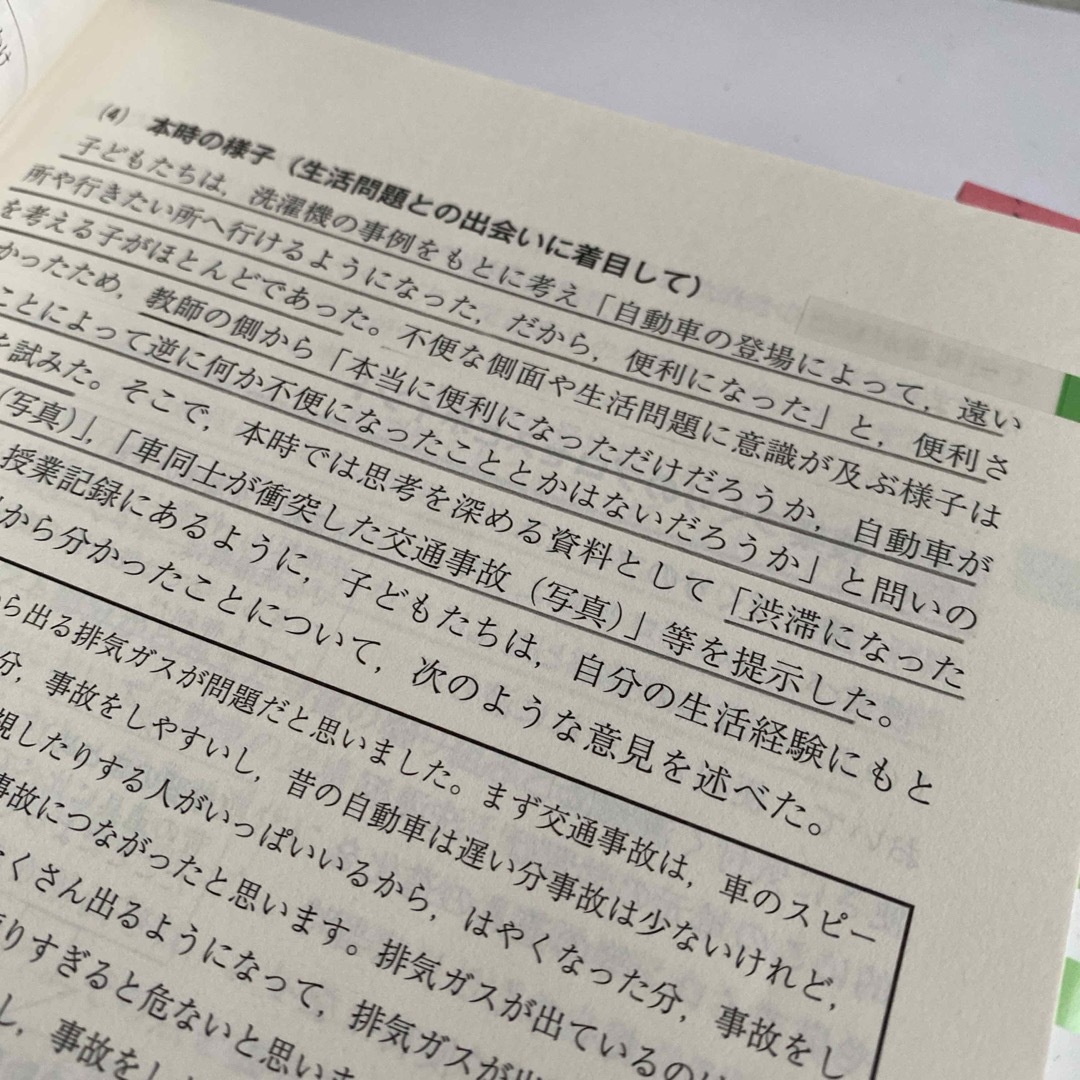 (4) 本時の様子（生活問題との出会いに着目して）
子どもたちは，洗濯機の事例をもとに考え「自動車の登場によって，遠い
所や行きたい所へ行けるようになった，だから，便利になった」と，便利さ
を考える子がほとんどであった。不便な側面や生活問題に意識が及ぶ様子は
かったため，教師の側から「本当に便利になっただけだろうか，自動車が
ことによって逆に何か不便になったこととかはないだろうか」と問いの
を試みた。そこで，本時では思考を深める資料として「渋滞になった
（写真）」，「車同士が衝突した交通事故（写真）」等を提示した。
授業記録にあるように，子どもたちは，自分の生活経験にもと
から分かったことについて，次のような意見を述べた。
ら出る排気ガスが問題だと思いました。まず交通事故は，車のスピー
分，事故をしやすいし，昔の自動車は遅い分事故は少ないけれど，
視したりする人がいっぱいいるから，はやくなった分，事故をし
事故につながったと思います。排気ガスが出ているの
くさん出るようになって，排気ガスが
りすぎると危ないと思いま
し，事故をし